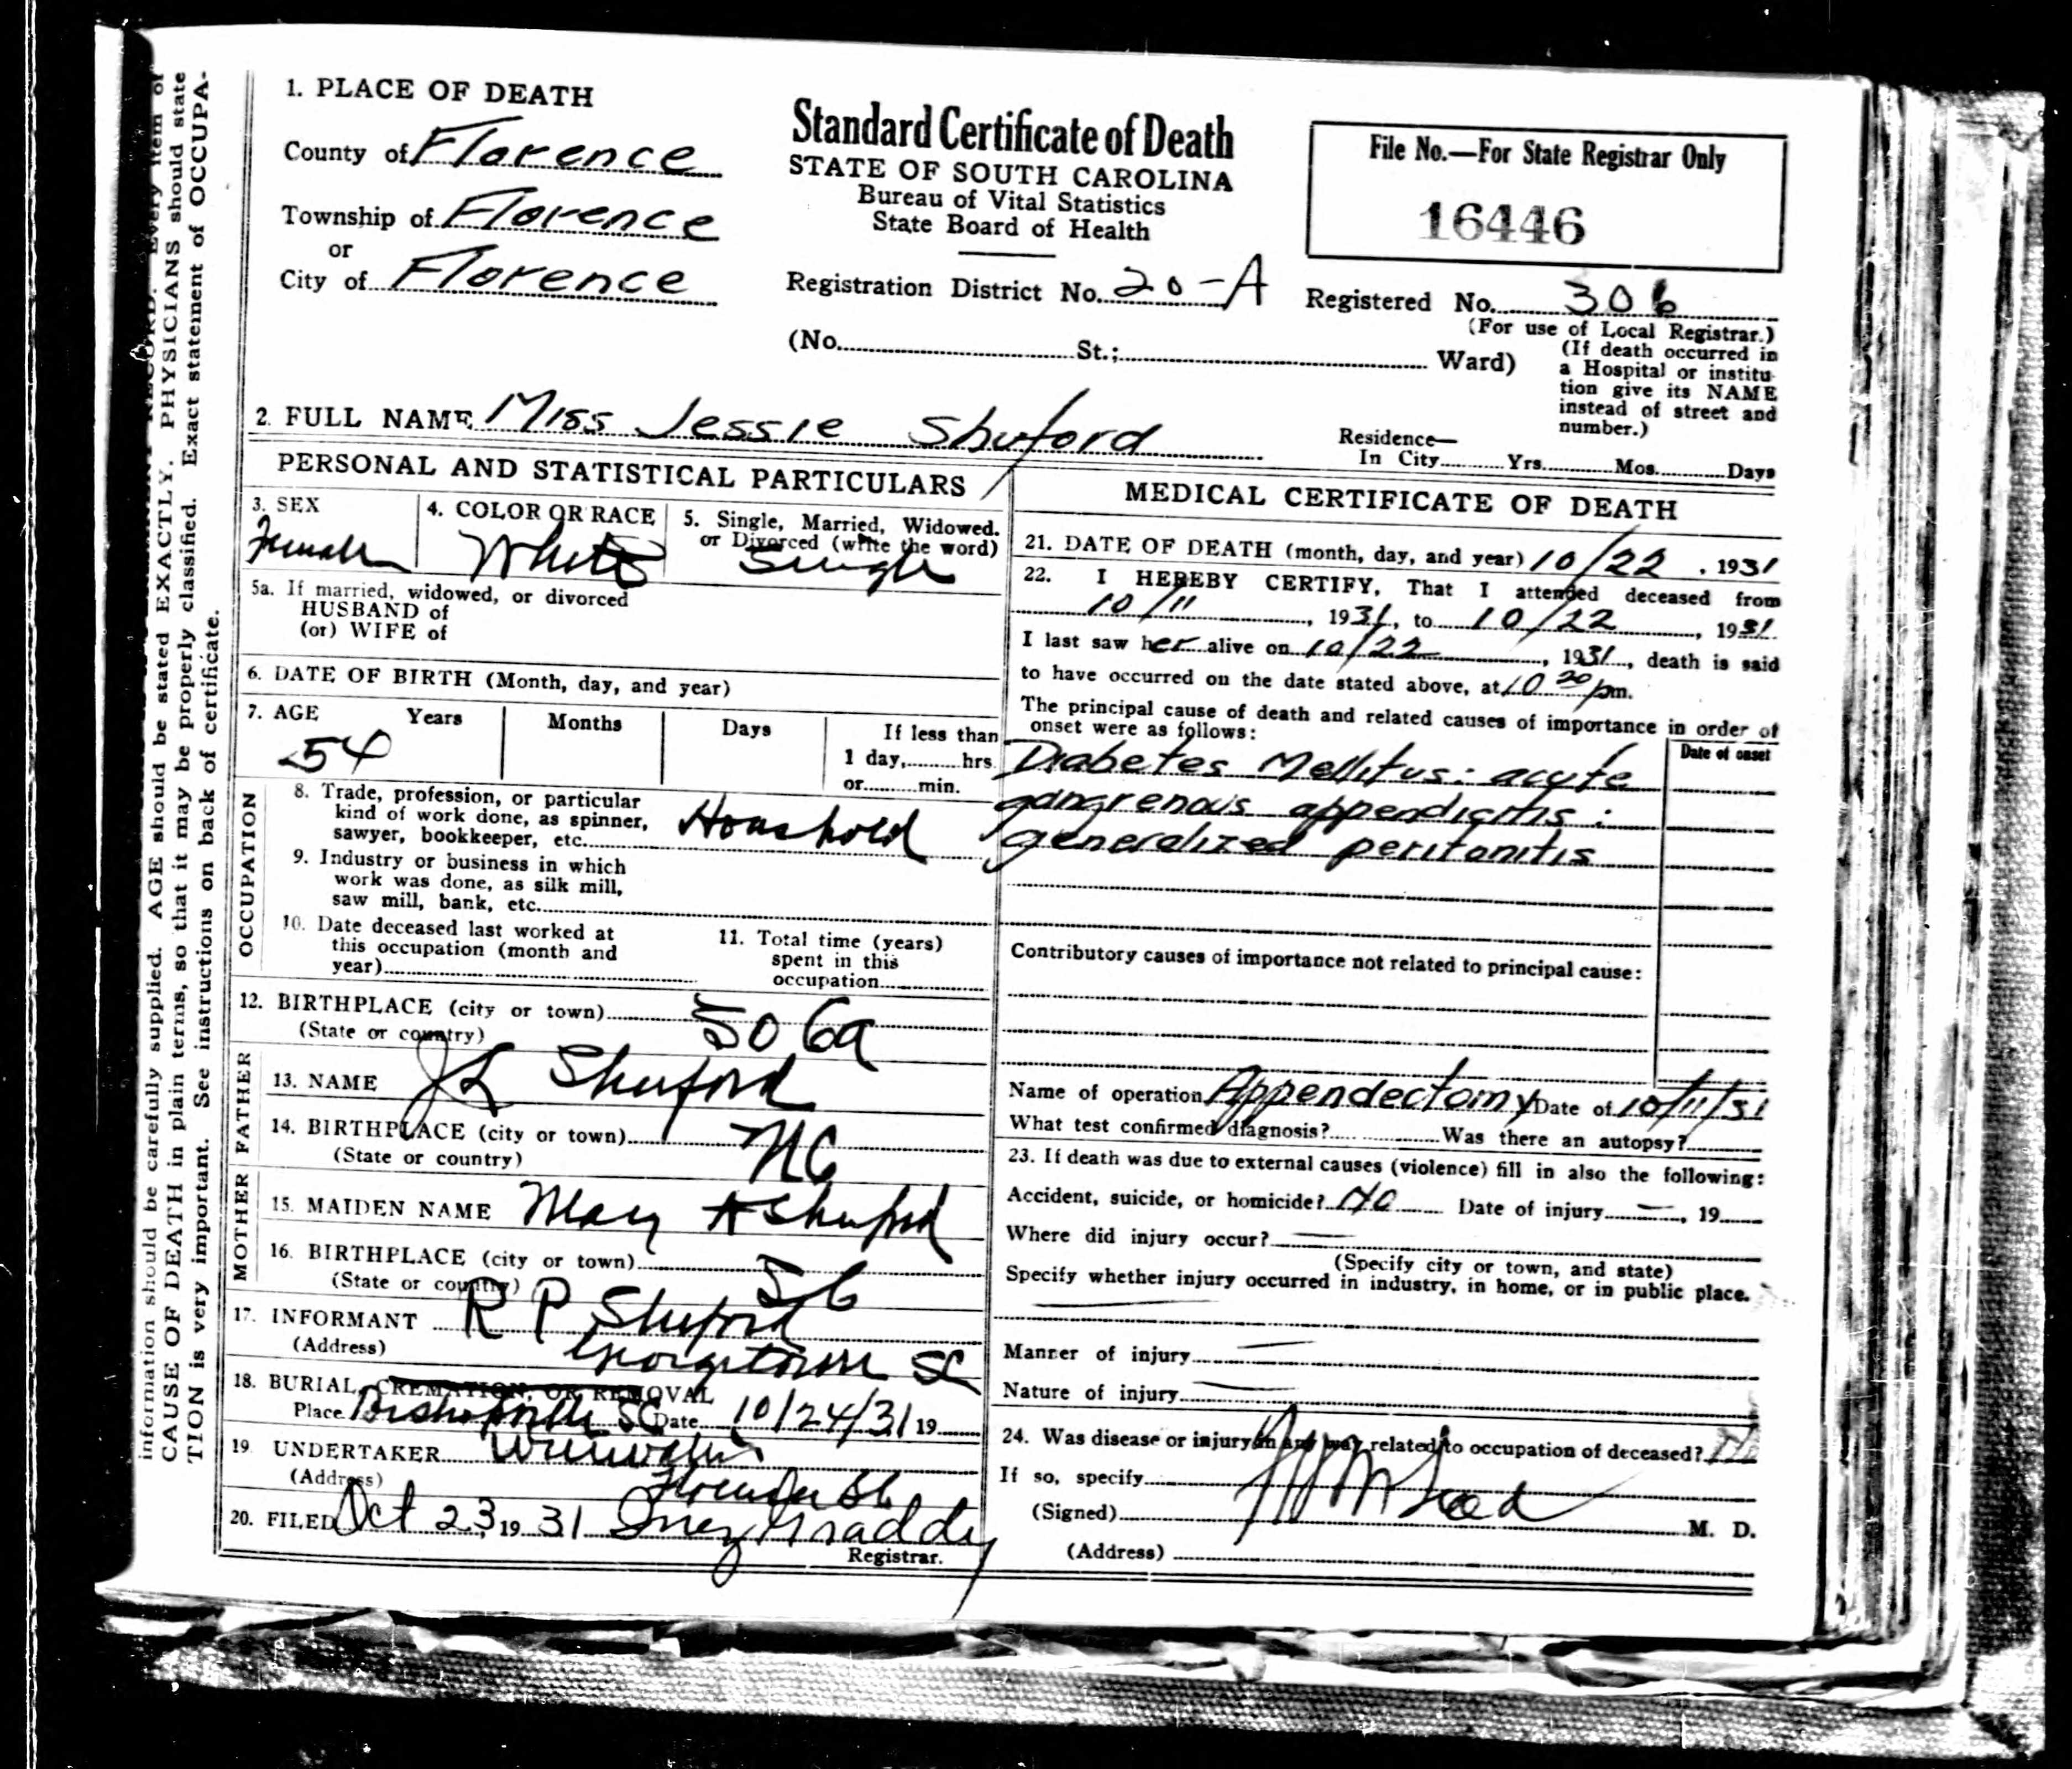 information should be carefully supplied. AGE should be stated EXACTLY. PHYSICIANS should state
CAUSE OF DEATH in plain terms, so that it may be properly classified. Exact statement of OCCUPA-
TION is very important. See instructions on back of certificate.
1. PLACE OF DEATH
County of Florence
Township of Florence
or
City of Florence
Standard Certificate of Death
STATE OF SOUTH CAROLINA
Bureau of Vital Statistics
State Board of Health
Registration District No. 20-A
(No. St.; Ward)
File No.—For State Registrar Only
16446
Registered No. 306
(For use of Local Registrar.)
(If death occurred in
a Hospital or institu-
tion give its NAME
instead of street and
number.)
2. FULL NAME Miss Jessie Shuford
Residence—
In City Yrs. Mos. Days
PERSONAL AND STATISTICAL PARTICULARS
3. SEX
Female
4. COLOR OR RACE
White
5. Single, Married, Widowed.
or Divorced (write the word)
Single
5a. If married, widowed, or divorced
HUSBAND of
(or) WIFE of
6. DATE OF BIRTH (Month, day, and year)
7. AGE Years Months Days If less than
54 1 day, hrs.
or min.
OCCUPATION
8. Trade, profession, or particular
kind of work done, as spinner,
sawyer, bookkeeper, etc. Houshold
9. Industry or business in which
work was done, as silk mill,
saw mill, bank, etc.
10. Date deceased last worked at
this occupation (month and
year)
11. Total time (years)
spent in this
occupation
12. BIRTHPLACE (city or town)
(State or country) So Ca
FATHER
13. NAME Shuford
14. BIRTHPLACE (city or town)
(State or country) NC
MOTHER
15. MAIDEN NAME Mary Shuford
16. BIRTHPLACE (city or town)
(State or country) SC
17. INFORMANT R P Shuford
(Address) Georgetown SC
18. BURIAL, CREMATION, OR REMOVAL
Place Bishopville SC Date 10/24/31 19
19. UNDERTAKER
(Address) Florence SC
20. FILED Oct 23, 19 31 Inez Graddy
Registrar.
MEDICAL CERTIFICATE OF DEATH
21. DATE OF DEATH (month, day, and year) 10/22, 1931
22. I HEREBY CERTIFY, That I attended deceased from
10/11, 1931, to 10/22, 1931.
I last saw her alive on 10/22, 1931, death is said
to have occurred on the date stated above, at 10 20 pm.
The principal cause of death and related causes of importance in order of
onset were as follows:
Date of onset
Diabetes Mellitus: acute
gangrenous appendicitis:
generalized peritonitis
Contributory causes of importance not related to principal cause:
Name of operation Appendectomy Date of 10/11/31
What test confirmed diagnosis? Was there an autopsy?
23. If death was due to external causes (violence) fill in also the following:
Accident, suicide, or homicide? No Date of injury —, 19
Where did injury occur? —
(Specify city or town, and state)
Specify whether injury occurred in industry, in home, or in public place.
—
Manner of injury —
Nature of injury —
24. Was disease or injury in any way related to occupation of deceased? No
If so, specify
(Signed) M. D.
(Address)